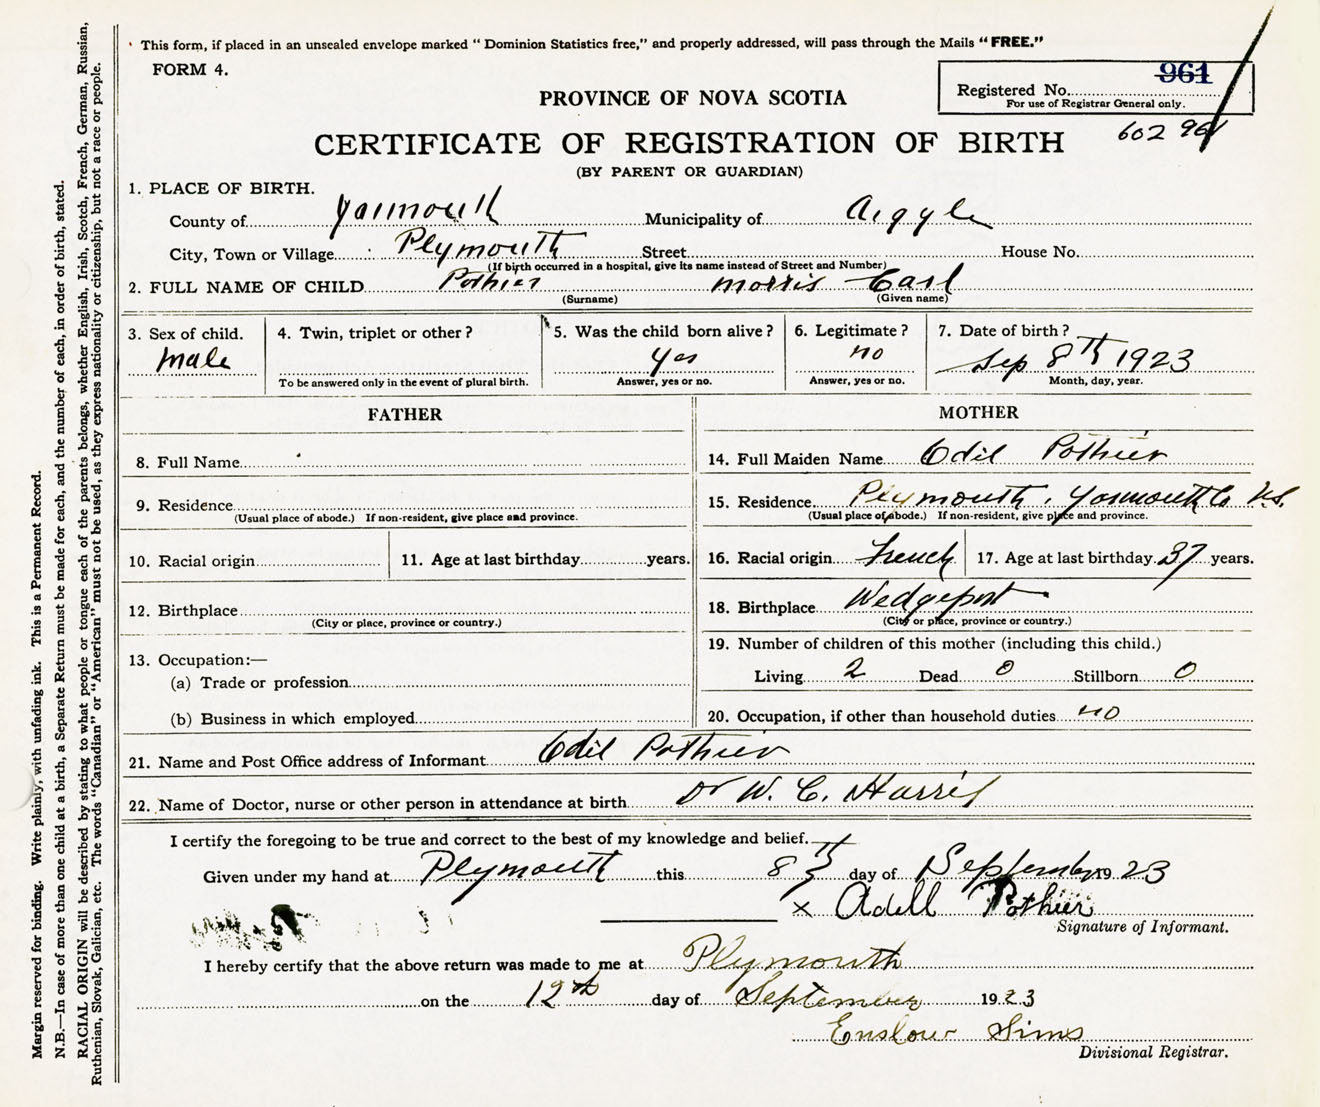 This form, if placed in an unsealed envelope marked " Dominion Statistics free," and properly addressed, will pass through the Mails " FREE."
FORM 4.
961
Registered No.
For use of Registrar General only.
PROVINCE OF NOVA SCOTIA
602 961
CERTIFICATE OF REGISTRATION OF BIRTH
(BY PARENT OR GUARDIAN)
1. PLACE OF BIRTH.
County of Yarmouth Municipality of Argyle
City, Town or Village Plymouth Street House No.
(If birth occurred in a hospital, give its name instead of Street and Number)
2. FULL NAME OF CHILD Pothier Morris Carl
(Surname) (Given name)
3. Sex of child. 4. Twin, triplet or other ? 5. Was the child born alive ? 6. Legitimate ? 7. Date of birth ?
male yes no Sep 8th 1923
To be answered only in the event of plural birth. Answer, yes or no. Answer, yes or no. Month, day, year.
FATHER MOTHER
8. Full Name 14. Full Maiden Name Odil Pothier
9. Residence 15. Residence Plymouth, Yarmouth Co N.S.
(Usual place of abode.) If non-resident, give place and province. (Usual place of abode.) If non-resident, give place and province.
10. Racial origin 11. Age at last birthday years. 16. Racial origin French 17. Age at last birthday 37 years.
12. Birthplace 18. Birthplace Wedgeport
(City or place, province or country.) (City or place, province or country.)
13. Occupation:— 19. Number of children of this mother (including this child.)
(a) Trade or profession Living 2 Dead 0 Stillborn 0
(b) Business in which employed 20. Occupation, if other than household duties no
21. Name and Post Office address of Informant Odil Pothier
22. Name of Doctor, nurse or other person in attendance at birth Dr W. C. Harris
I certify the foregoing to be true and correct to the best of my knowledge and belief.
Given under my hand at Plymouth this 8th day of September 1923
x Adell Pothier
Signature of Informant.
I hereby certify that the above return was made to me at Plymouth
on the 12th day of September 1923
Enslow Sims
Divisional Registrar.
Margin reserved for binding. Write plainly, with unfading ink. This is a Permanent Record.
N.B.—In case of more than one child at a birth, a Separate Return must be made for each, and the number of each, in order of birth, stated.
RACIAL ORIGIN will be described by stating to what people or tongue each of the parents belongs, whether English, Irish, Scotch, French, German, Russian,
Ruthenian, Slovak, Galician, etc. The words "Canadian" or "American" must not be used, as they express nationality or citizenship, but not a race or people.